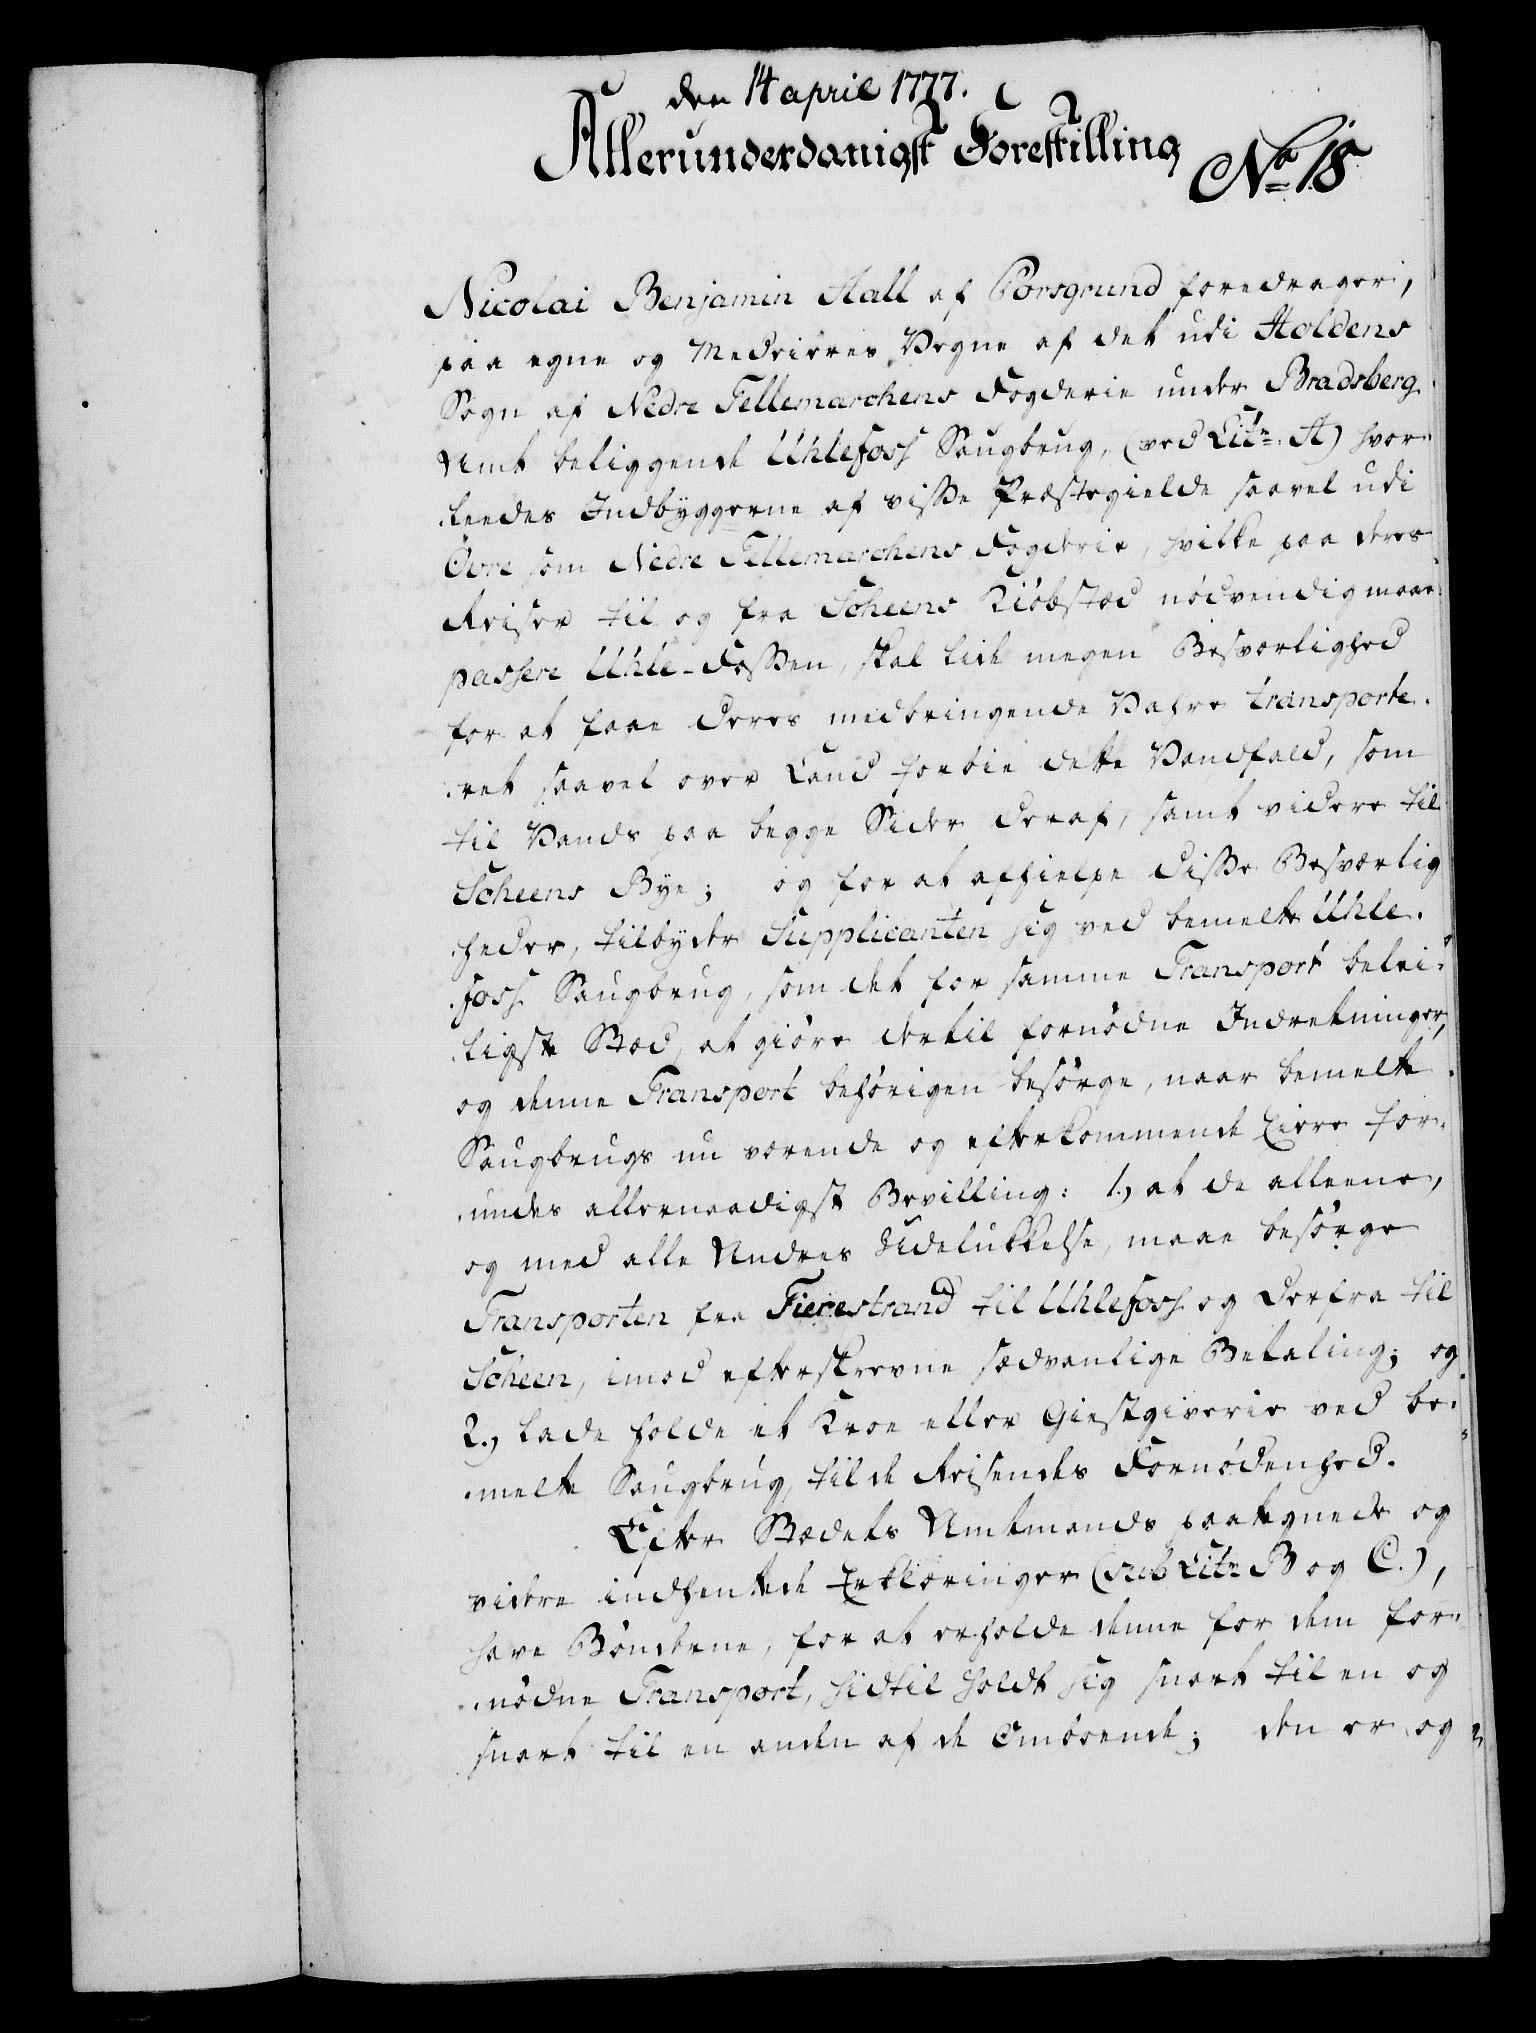 den 14 april 1777.
Allerunderdanigst Forestilling
No 18
Nicolai Benjamin Aall af Porsgrund foredrager,
paa egne og Medeieres Vegne af det udi Holdens
Sogn af Nedre Tellemarchens Fogderie under Bradsberg
Amt beliggende Uhlefoss Saugbrug, (ved Litr: A) hvor-
leedes Indbyggerne af visse Præstegielde saavel udi
Övre som Nedre Tellemarchens Fogderie, hvilke paa deres
Reiser til og fra Scheens Kiöbstæd nödvendig maae
passere Uhle-Fossen, skal lide megen Besværlighed
for at faae deres medbringende Vahre transporte-
ret saavel over Land forbie dette Vandfald, som
til Vands paa begge Sider deraf, samt videre til
Scheens Bye; og for at afhielpe disse Besværlig
heder, tilbyder Supplicanten sig ved bemelte Uhle-
foss Saugbrug, som det for samme Transport belei-
ligste Stæd, at giöre dertil fornödne Indretninger,
og denne Transport behörigen besörge, naar bemelte
Saugbrugs nu værende og efterkommende Eiere for-
undes allernaadigst Bevilling: 1, at de alleene,
og med alle Andres Udelukkelse, maae besörge
Transporten fra Fierestrand til Uhlefoss og derfra til
Scheen, imod efterskrevne sædvanlige Betaling; og
2, lade holde et Kroe eller Giestgiverie ved be-
melte Saugbrug, til de Reisendes Fornödenhed.
Efter Stædets Amtmands paategnede og
videre indhentede Erklæringer (sub Litr B og C.),
have Bönderne, for at erholde denne for dem for-
nödne Transport, hidtil holdt sig snart til en og
snart til en anden af de Omboende; den er og